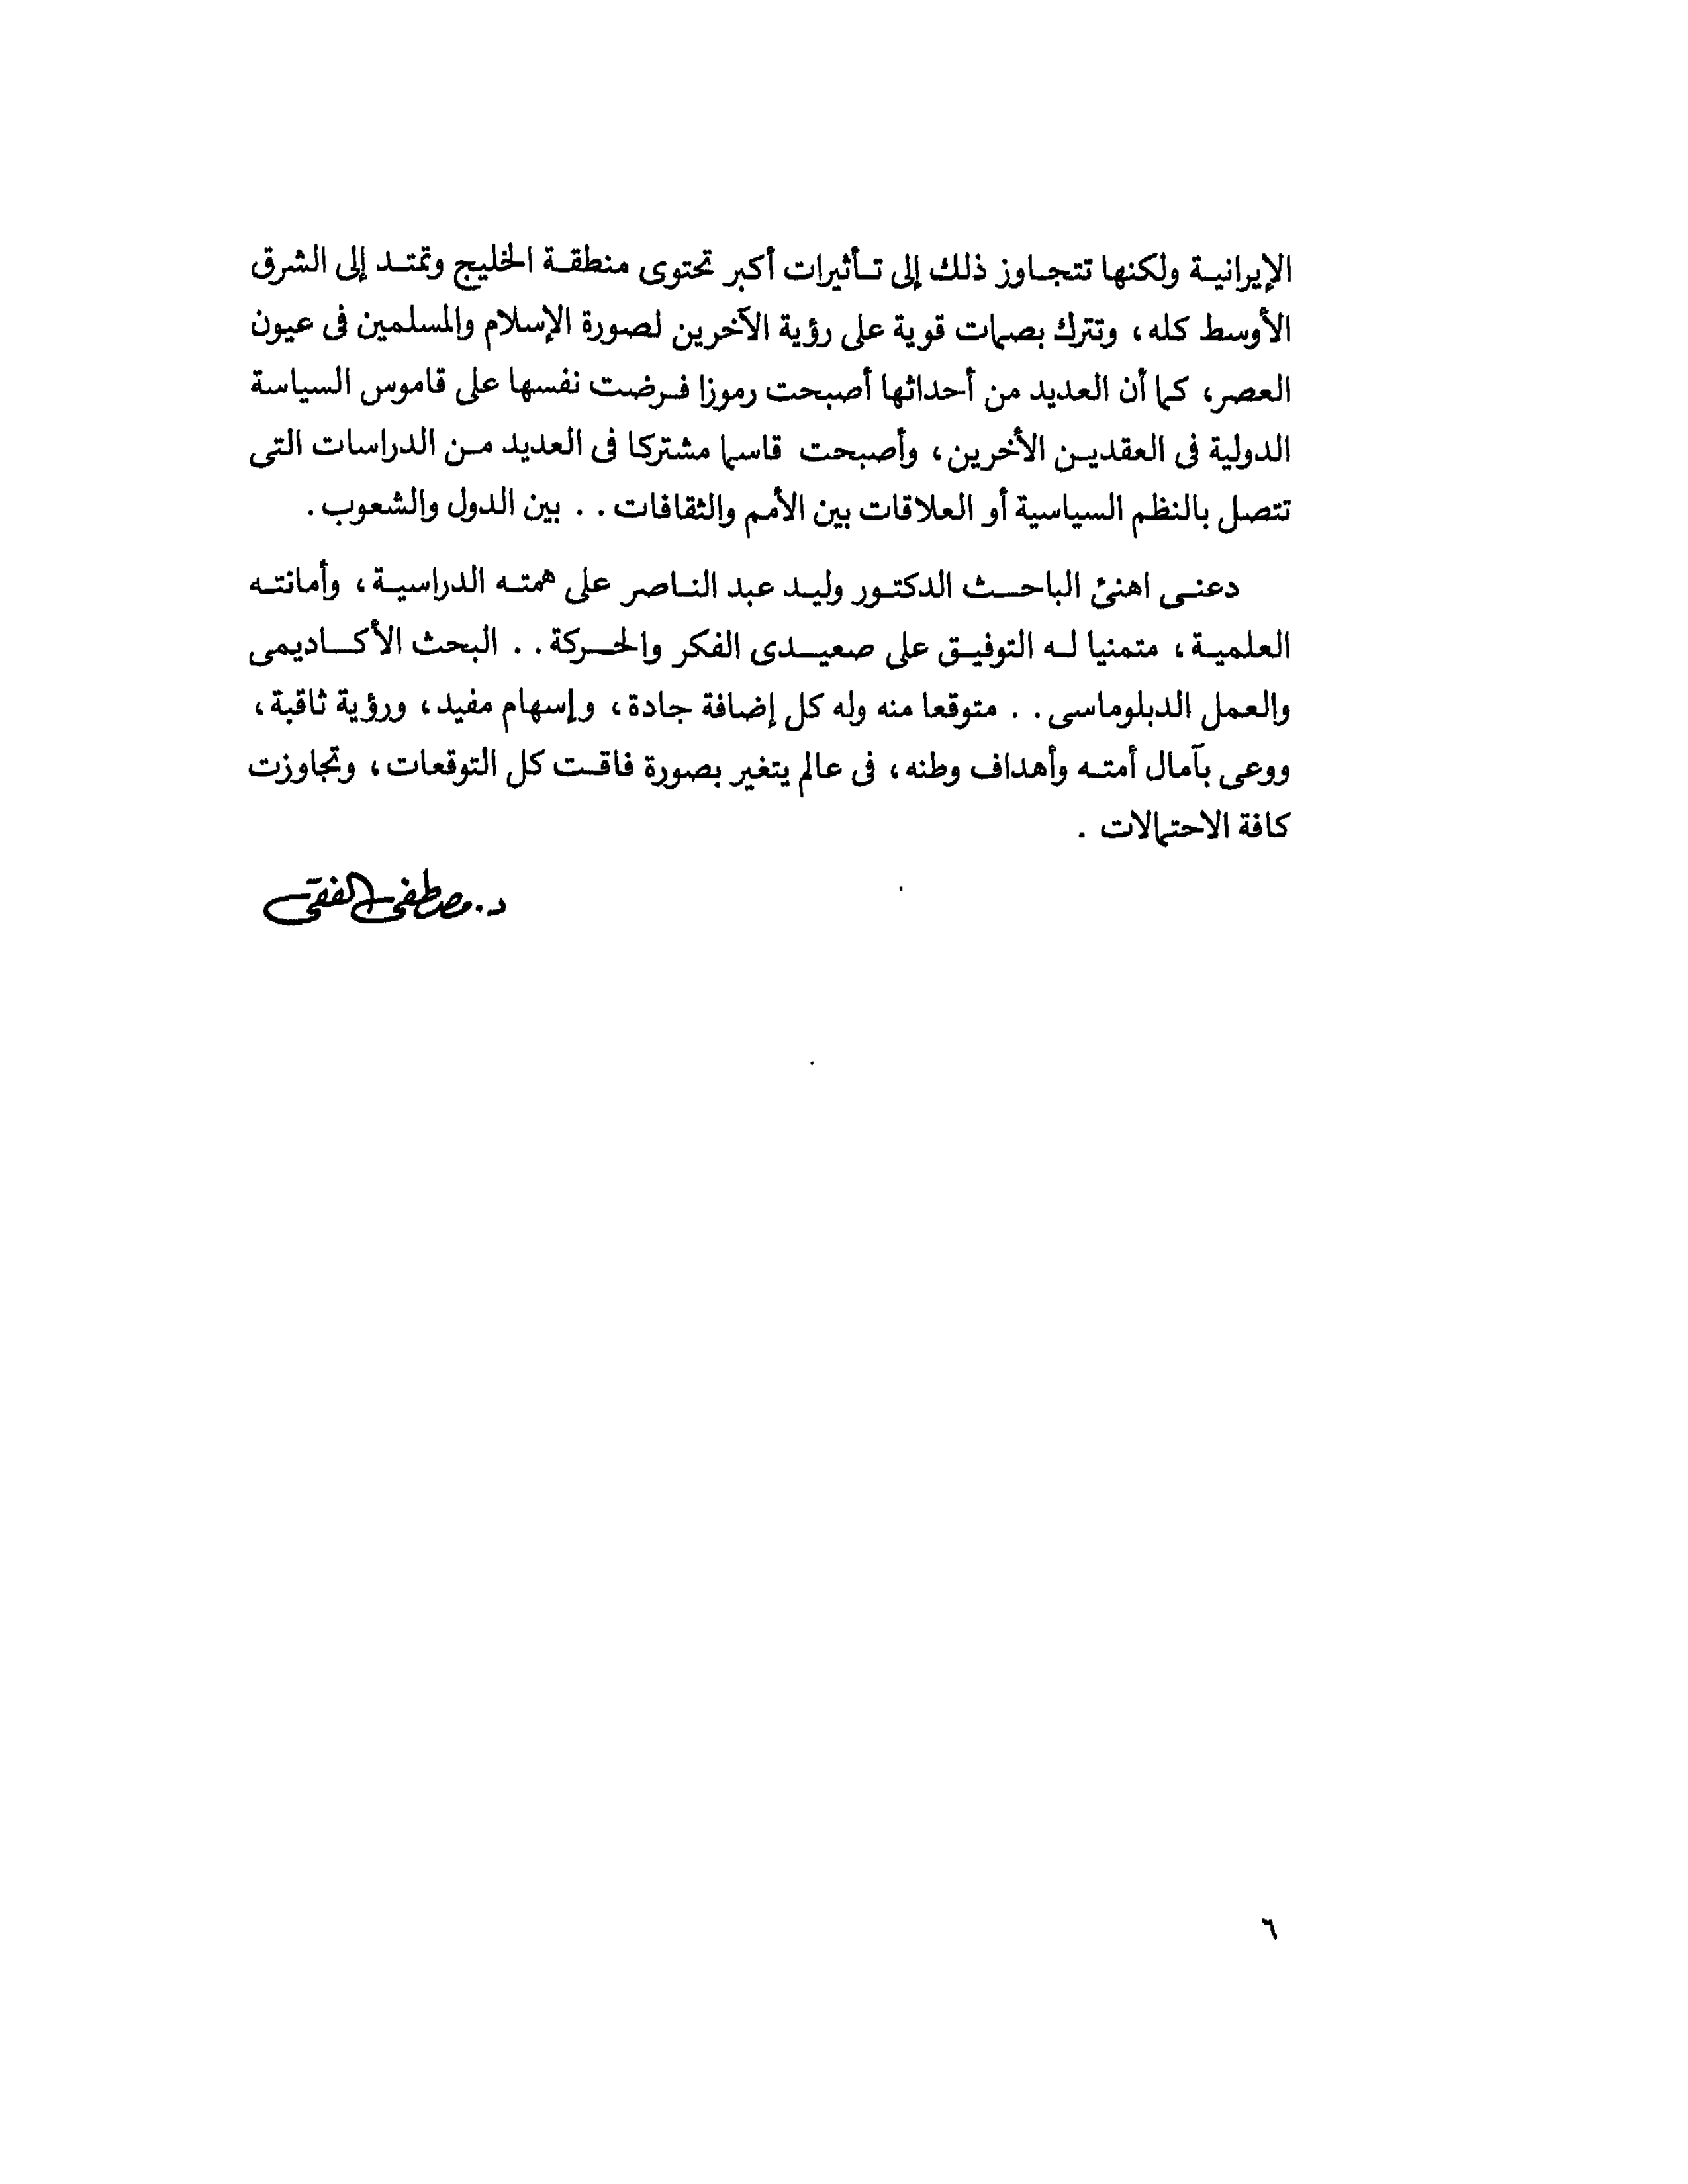 الإيرانية ولكنها تتجاوز ذلك إلى تأثيرات أكبر تحتوى منطقة الخليج وتمتد إلى الشرق
الأوسط كله، وتترك بصمات قوية على رؤية الآخرين لصورة الإسلام والمسلمين فى عيون
العصر، كما أن العديد من أحداثها أصبحت رموزا فرضت نفسها على قاموس السياسة
الدولية فى العقدين الأخرين، وأصبحت قاسما مشتركا فى العديد من الدراسات التى
تتصل بالنظم السياسية أو العلاقات بين الأمم والثقافات . . بين الدول والشعوب.
دعنى اهنئ الباحث الدكتور وليد عبد الناصر على همته الدراسية، وأمانته
العلمية، متمنيا له التوفيق على صعيدى الفكر والحركة . . البحث الأكاديمى
والعمل الدبلوماسى . . متوقعا منه وله كل إضافة جادة، وإسهام مفيد، ورؤية ثاقبة،
ووعى بآمال أمته وأهداف وطنه، فى عالم يتغير بصورة فاقت كل التوقعات، وتجاوزت
كافة الاحتمالات .
د. مصطفى الفقى
٦